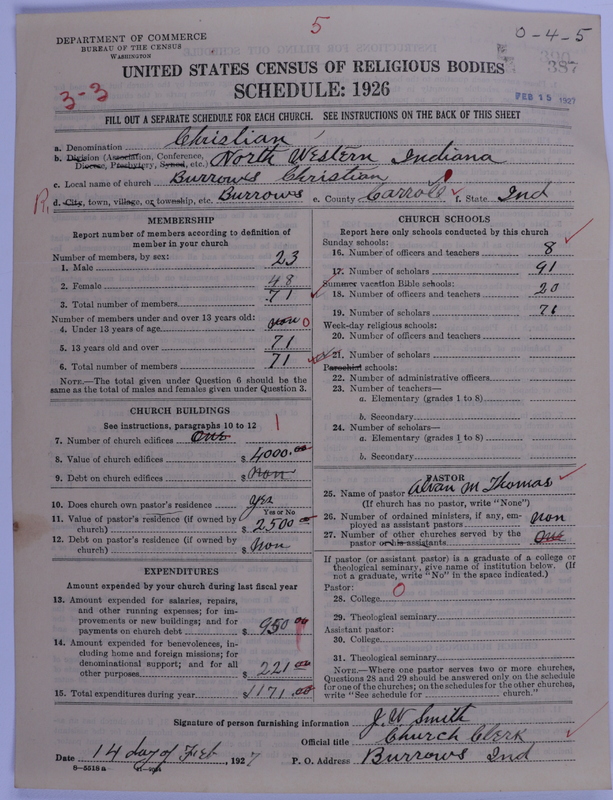 5
0-4-5
DEPARTMENT OF COMMERCE
BUREAU OF THE CENSUS
WASHINGTON
387
UNITED STATES CENSUS OF RELIGIOUS BODIES
SCHEDULE: 1926
3-3
FEB 15 1927
FILL OUT A SEPARATE SCHEDULE FOR EACH CHURCH. SEE INSTRUCTIONS ON THE BACK OF THIS SHEET
a. Denomination Christian
b. Division (Association, Conference, Diocese, Presbytery, Synod, etc.) North Western Indiana
c. Local name of church Burrows Christian
d. City, town, village, or township, etc. Burrows e. County Carroll f. State Ind
MEMBERSHIP
Report number of members according to definition of
member in your church
Number of members, by sex:
1. Male 23
2. Female 48
3. Total number of members 71
Number of members under and over 13 years old:
4. Under 13 years of age non 0
5. 13 years old and over 71
6. Total number of members 71
NOTE.—The total given under Question 6 should be the
same as the total of males and females given under Question 3.
CHURCH BUILDINGS
See instructions, paragraphs 10 to 12
7. Number of church edifices One 1
8. Value of church edifices $ 4000.00
9. Debt on church edifices $ Non
10. Does church own pastor's residence yes
Yes or No
11. Value of pastor's residence (if owned by
church) $ 2500 00
12. Debt on pastor's residence (if owned by
church) $ Non
EXPENDITURES
Amount expended by your church during last fiscal year
13. Amount expended for salaries, repairs,
and other running expenses; for im-
provements or new buildings; and for
payments on church debt $ 950 00
14. Amount expended for benevolences, in-
cluding home and foreign missions; for
denominational support; and for all
other purposes $ 221 00
15. Total expenditures during year $ 1171.00
CHURCH SCHOOLS
Report here only schools conducted by this church
Sunday schools:
16. Number of officers and teachers 8
17. Number of scholars 91
Summer vacation Bible schools:
18. Number of officers and teachers 20
19. Number of scholars
Week-day religious schools:
20. Number of officers and teachers
21. Number of scholars
Parochial schools:
22. Number of administrative officers
23. Number of teachers—
a. Elementary (grades 1 to 8)
b. Secondary
24. Number of scholars—
a. Elementary (grades 1 to 8)
b. Secondary
PASTOR
25. Name of pastor Alvan M Thomas
(If church has no pastor, write "None")
26. Number of ordained ministers, if any, em-
ployed as assistant pastors non
27. Number of other churches served by the
pastor or his assistants One
If pastor (or assistant pastor) is a graduate of a college or
theological seminary, give name of institution below. (If
not a graduate, write "No" in the space indicated.)
Pastor:
28. College 0
29. Theological seminary
Assistant pastor:
30. College
31. Theological seminary
NOTE.—Where one pastor serves two or more churches,
Questions 28 and 29 should be answered only on the schedule
for one of the churches; on the schedules for the other churches,
write "See schedule for church."
Signature of person furnishing information J. W. Smith
Official title Church Clerk
Date 14 day of Feb, 1927 P. O. Address Burrows Ind
8—5518 a